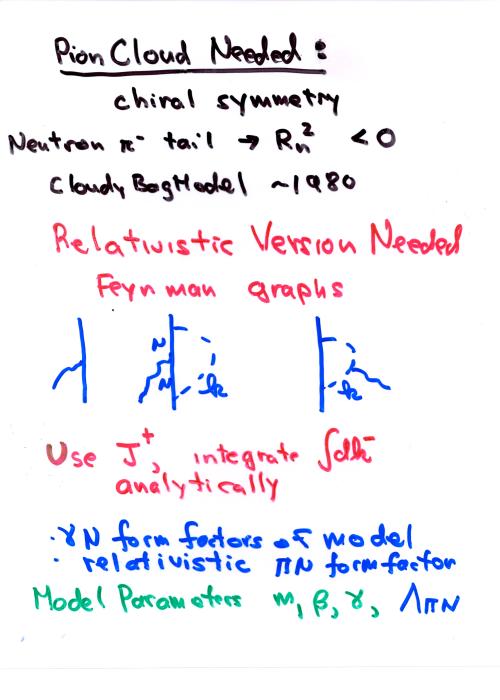 Pion Cloud Needed:
chiral symmetry
Neutron π⁻ tail → Rₙ² < 0
Cloudy Bag Model ~1980
Relativistic Version Needed
Feynman graphs
N
N k k
Use J⁺, integrate ∫dk⁻
analytically
· γN form factors of model
· relativistic πN form factor
Model Parameters m, β, γ, ΛπN